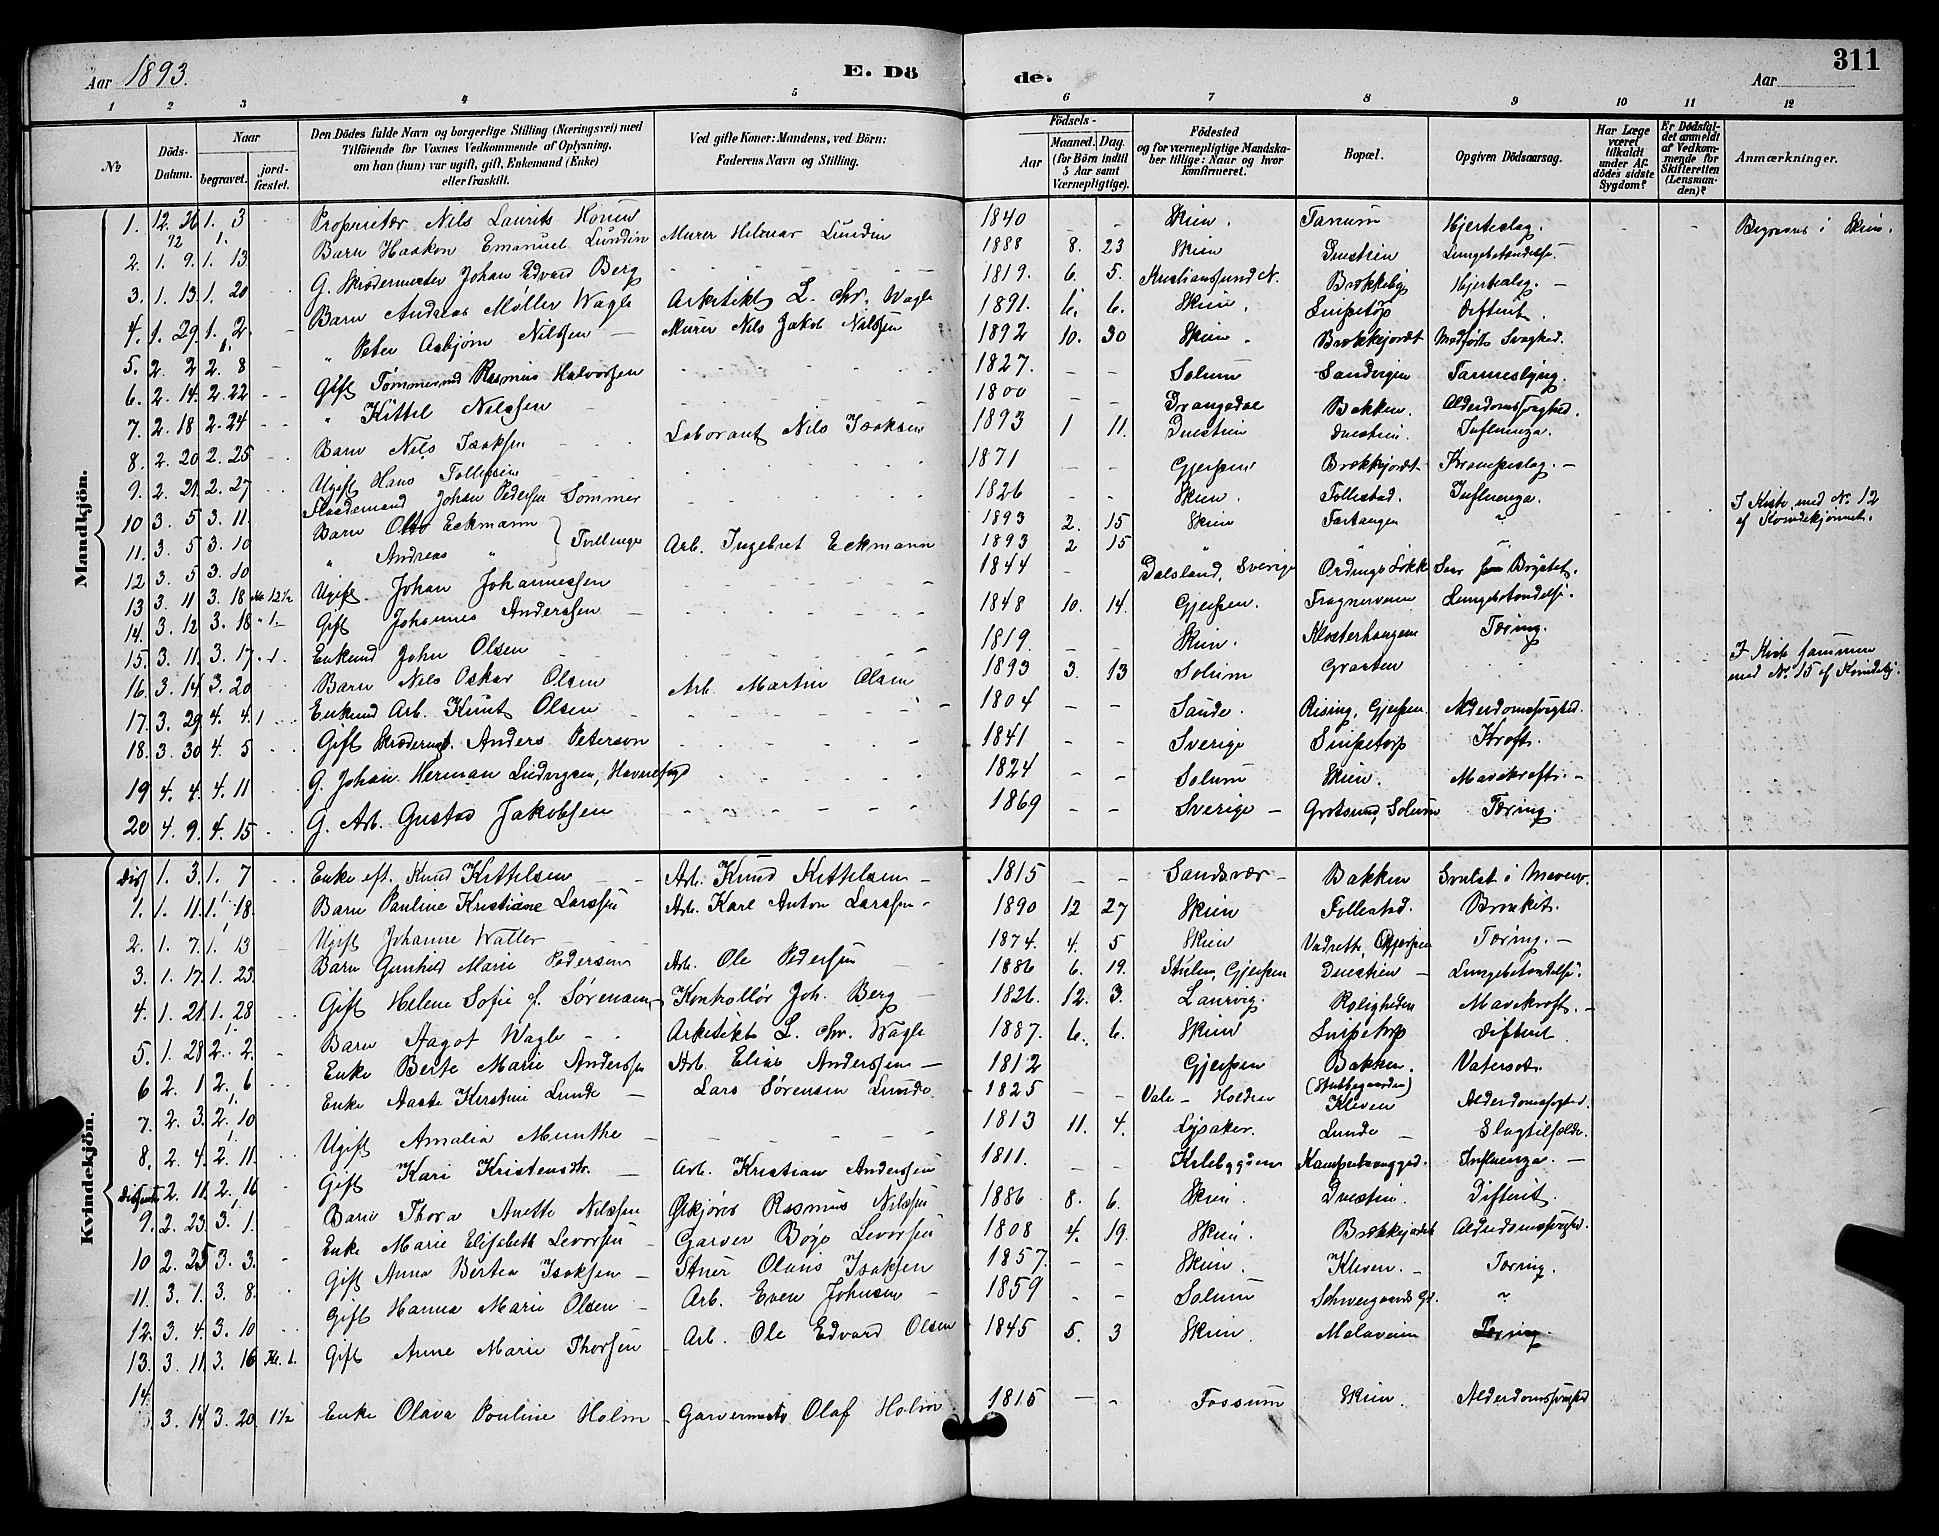 Aar 1893. E. Dö de. Aar 311
1 2 3 4 5 6 7 8 9 10 11 12
No Döds-Datum. Naar begravet. jordfæstet. Den Dödes fulde Navn og borgerlige Stilling (Næringsvei) med Tilföiende for Voxnes Vedkommende af Oplysning, om han (hun) var ugift, gift, Enkemand (Enke) eller fraskilt. Ved gifte Koner: Mandens, ved Börn: Faderens Navn og Stilling. Födsels- Aar Maaned. Dag. (for Börn indtil 5 Aar samt Værnepligtige). Födested og for værnepligtige Mandskaber tillige: Naar og hvor konfirmeret. Bopæl. Opgiven Dödsaarsag. Har Læge været tilkaldt under Afdödes sidste Sygdom? Er Dödsfaldet anmeldt af Vedkommende for Skifteretten (Lensmanden)? Anmærkninger.
Mandkjön.
1. 12. 26 1. 3 Proprietær Nils Laurits 1840 - - Skien. Tanum Hjerteslag. Begraves i Skien.
2. 1. 9. 1. 13 Barn Haakon Emanuel Lundin Murer Hilmar Lundin 1888 8. 23 Skien Duestien Lungebetændelse.
3. 1. 13 1. 20 G. Skrædermester Johan Edvard Berg 1819. 6. 5. Kristiansund N. Brekkeby Hjerteslag.
4. 1. 29. 1. 2 Barn Andreas Møller Wagle Arkitekt L. Chr. Wagle 1891. 6. 6. Skien. Snipetorp Difterit.
5. 2. 2 2. 8 " Peter Asbjørn Nilssen Murer Nils Jakob Nilssen 1892 10. 30 Skien. Brekkejordet Medfødt Svaghed.
6. 2. 14. 2. 22 Gift Tømmermd Rasmus Halvorsen 1827. - - Solum Sandvigen
7. 2. 18 2. 24 " Kittel Nilssen 1800 Drangedal Bakken. Alderdomssvaghed.
8. 2. 20 2. 25 Barn Nils Isaksen Laborant Nils Isaksen 1893 1 11. Duestien Duestien. Influenza.
9. 2. 21. 2. 27 Ugift Hans Tollefsen 1871 - - Gjerpen Brekkejordet Krampeslag.
10 3. 5 3. 11. Johan Pedersen Sommer 1826 Skien. Follestad. Influenza.
11. 3. 5 3. 10 Barn Otto Eckmann } Tvillinger Arb. Ingebret Eckmann 1893 2. 15 Skien Fartangen " I Kiste med No 12 af Kvindekjønnet.
12 3. 5 3. 10 " Andreas " 1893 2 15 "
13 3. 11 3. 18 Kl. 12½ Ugift Johan Johannessen 1844 - Dalsland, Sverige Saar Brystet.
14. 3. 12 3. 18 " 1 Gift Johannes Anderssen 1848 10. 14. Gjerpen. Lungebetændelse.
15. 3. 11. 3. 17 " 1. Enkemd John Olsen 1819. - - Skien. Klosterhaugen Tæring.
16. 3. 14 3. 20 Barn Nils Oskar Olsen Arb. Martin Olsen 1893 3. 13 Solum Graaten I Kiste sammen med No 15 af Kvindekj.
17. 3. 29 4. 4. 1 Enkemd Arb. Knut Olsen 1804 - - Sande. Rising, Gjerpen Alderdomssvaghed.
18. 3. 30 4. 5 Gift Skrædermst. Anders Peterson 1841 - - Sverige Snipetorp Kræft.
19 4. 4. 4. 11 G. Johan Herman Ludvigsen, Havnefogd 1824 - - Solum Skien. Mavekræft.
20 4. 9. 4. 15 G. Arb. Gustav Jakobsen 1869 - - Sverige Solum Tæring.
Kvindekjön.
Dis. 1. 3. 1. 7 Enke eft. Knud Kittelsen Arb. Knud Kittelsen 1815 - - Sandsvær Bakken Svulst i Maven.
1. 1. 11. 1. 18 Barn Pauline Kristiane Larssen Arb. Karl Anton Larssen 1890 12 27 Skien Follestad. Bronkit.
2. 1. 7. 1. 13 Ugift Johanne Waller 1874. 4. 5 Skien Vadrette, Gjerpen Tæring.
3. 1. 17. 1. 23 Barn Gunhild Marie Pedersen Arb. Ole Pedersen 1886 6. 19. Gjerpen Duestien Lungebetændelse.
4. 1. 21. 1. 28 Gift Helene Sofie f. Sørensen Kontrollør Joh. Berg 1826. 12. 3. Laurvig. Roligheden Mavekræft.
5. 1. 28 2. 2. Barn Aagot Wagle Arkitekt L. Chr. Wagle 1887. 6. 6. Skien Snipetorp Difterit
6 2. 1 2. 6 Enke Berte Marie Anderssen Arb. Elias Anderssen 1812 Gjerpen Bakken. (Stubbegaarden) Vatersot.
7. 2. 3. 2. 10 Enke Aaste Kirstine Lunde Lars Sørensen Lunde 1825 - - Vale - Holden Kleven Alderdomssvaghed.
8. 2. 4. 2. 11. Ugift Amalia Munthe 1813 11. 4. Lysaker. Lunde Slagtilfælde.
Dissent. 2. 11. 2. 16 Gift Kari Kristensdtr. Arb. Kristian Anderssen 1811. - - Kilebygden Influenza.
9. 2. 23. 3. 1. Barn Thora Anette Nilssen Rasmus Nilssen 1886. 8. 6. Skien. Duestien. Difterit.
10 2. 25 3. 3. Enke Marie Elisabeth Levorsen Garver Levorsen 1808 4. 19. Skien. Brekkejordet Alderdomssvaghed.
11. 3. 1. 3. 8. Gift Anna Bertea Isaksen Olaus Isaksen 1857. - - Skien. Kleven. Tæring.
12. 3. 4. 3. 10 Gift Hanna Marie Olsen Arb. Even Johnsen 1859 - - Solum Schweigaards Gd. "
13. 3. 11. 3. 16 Kl. 1. Gift Anne Marie Thorsen Arb. Ole Edvard Olsen 1845 5. 3 Skien. Melaveien Tæring.
14. 3. 14 3. 20 1½ Enke Olava Pouline Holm Garvermest. Olaf Holm 1815 - - Fossum Skien. Alderdomssvaghed